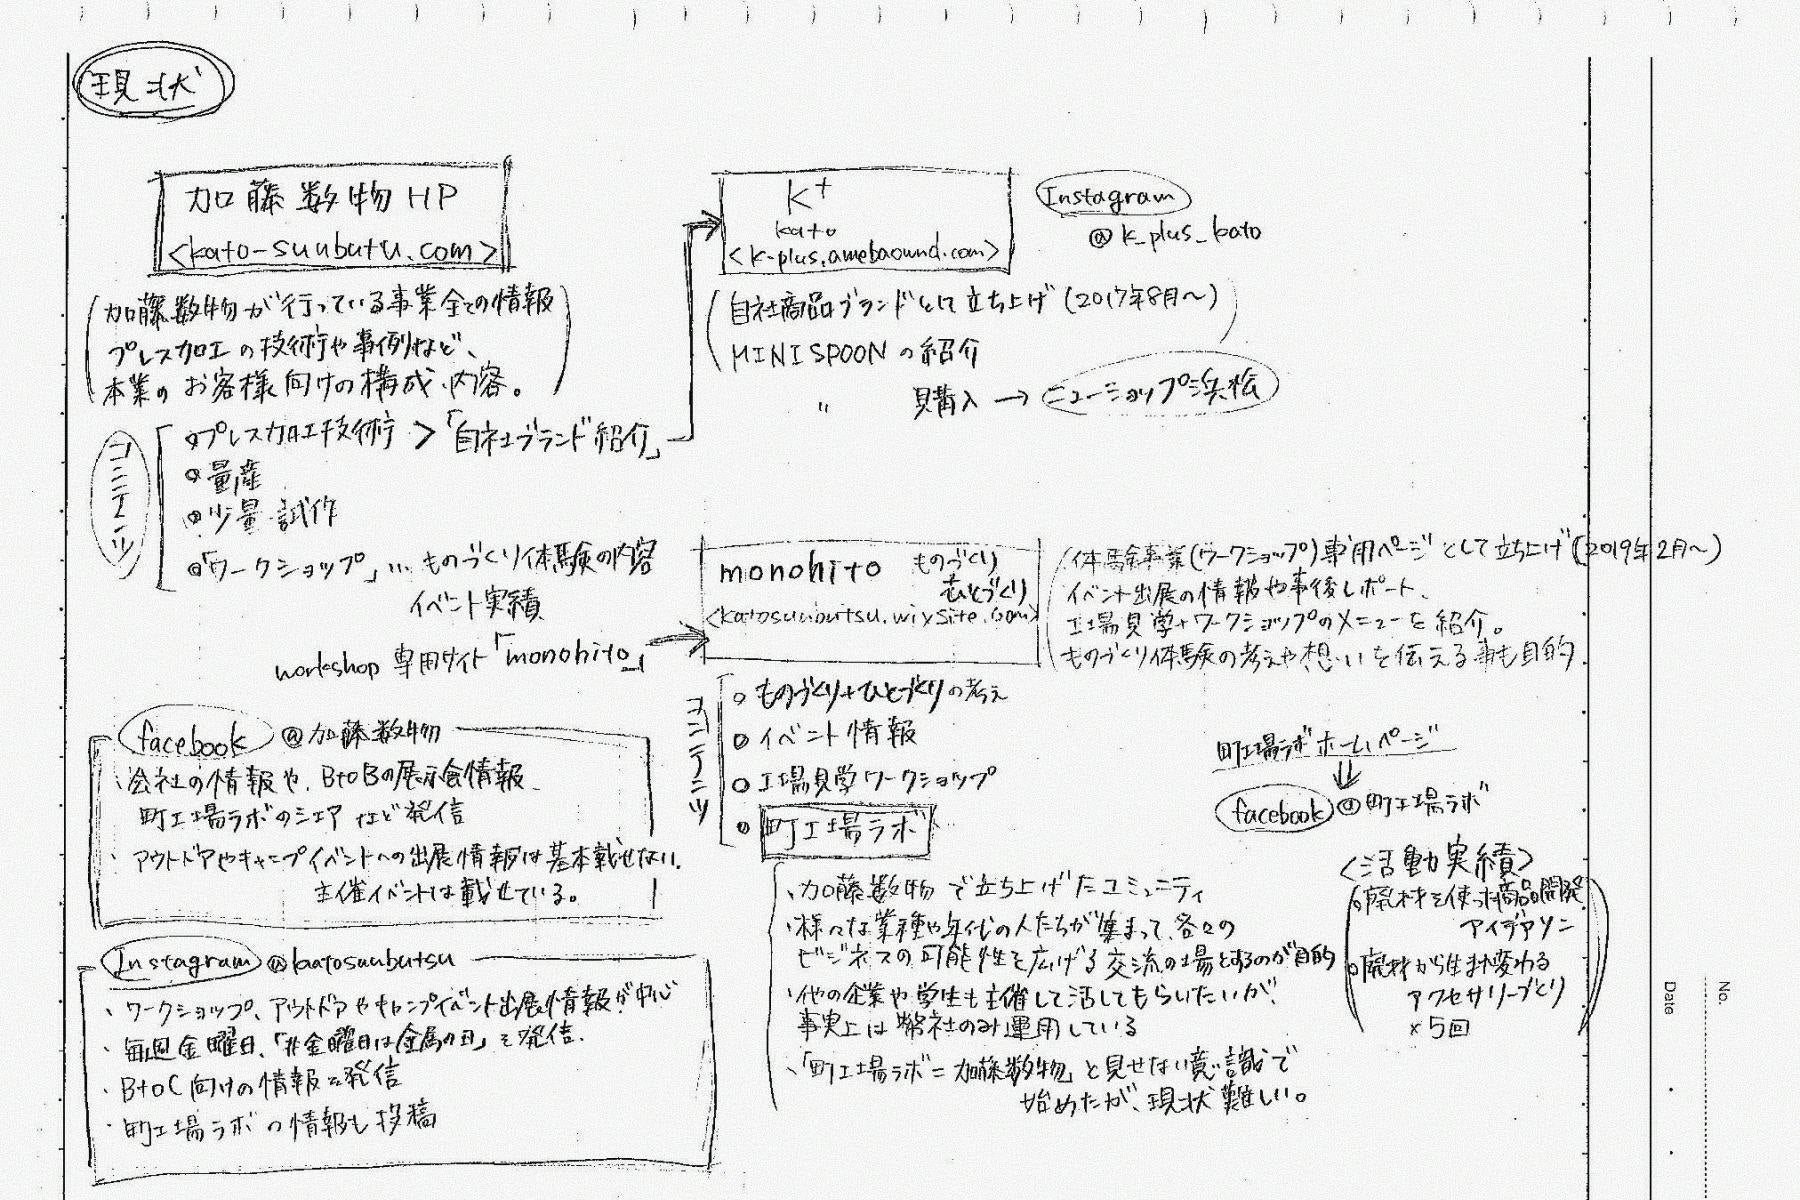 現状
加藤数物HP
<kato-suubutu.com>
(加藤数物が行っている事業全ての情報
プレス加工の技術や事例など、
本業のお客様向けの構成、内容。)
コンテンツ
○プレス加工技術 > 「自社ブランド紹介」
○量産
○少量・試作
○「ワークショップ」… ものづくり体験の内容
イベント実績
workshop 専用サイト「monohito」
K+
kato
<k-plus.amebaownd.com>
Instagram
@k_plus_kato
(自社商品ブランドとして立ち上げ(2017年8月〜)
MINI SPOONの紹介
〃 購入 → ニューショップ浜松
monohito ものづくり
ひとづくり
<katosuubutsu.wixsite.com>
(体験事業(ワークショップ)専用ページとして立ち上げ(2019年2月〜)
イベント出展の情報や事後レポート、
工場見学+ワークショップのメニューを紹介。
ものづくり体験の考えや想いを伝える事も目的
コンテンツ
○ものづくり+ひとづくりの考え
○イベント情報
○工場見学ワークショップ
○町工場ラボ
、加藤数物で立ち上げたコミュニティ
、様々な業種や年代の人たちが集まって、各々の
ビジネスの可能性を広げる交流の場とするのが目的
、他の企業や学生も主催して活してもらいたいが、
事実上は弊社のみ運用している
、「町工場ラボ=加藤数物」と見せない意識で
始めたが、現状難しい。
町工場ラボホームページ
⇓
facebook @町工場ラボ
<活動実績>
○廃材を使った商品開発
アイデアソン
○廃材から生まれ変わる
アクセサリーづくり
×5回
facebook @加藤数物
、会社の情報や、BtoBの展示会情報、
町工場ラボのシェアなど発信
、アウトドアやキャンプイベントへの出展情報は基本載せない。
主催イベントは載せている。
Instagram @katosuubutsu
、ワークショップ、アウトドアやキャンプイベント出展情報が中心
、毎週金曜日、「#金曜日は金属の日」を発信。
、BtoC向けの情報を発信
、町工場ラボの情報も投稿
No.
Date